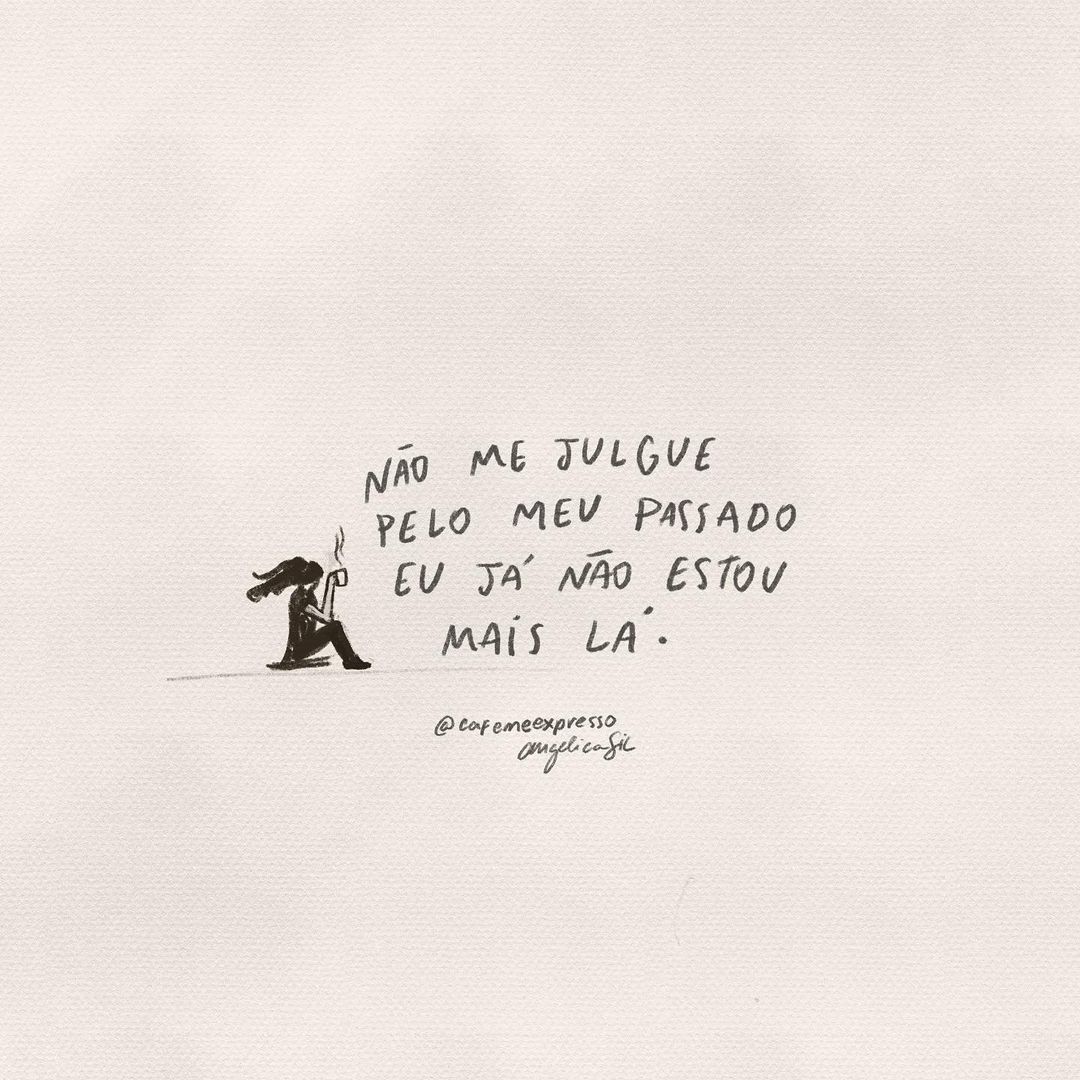 NÃO ME JULGUE
PELO MEU PASSADO
EU JÁ NÃO ESTOU
MAIS LÁ.
@cafemeexpresso
angelicaGil